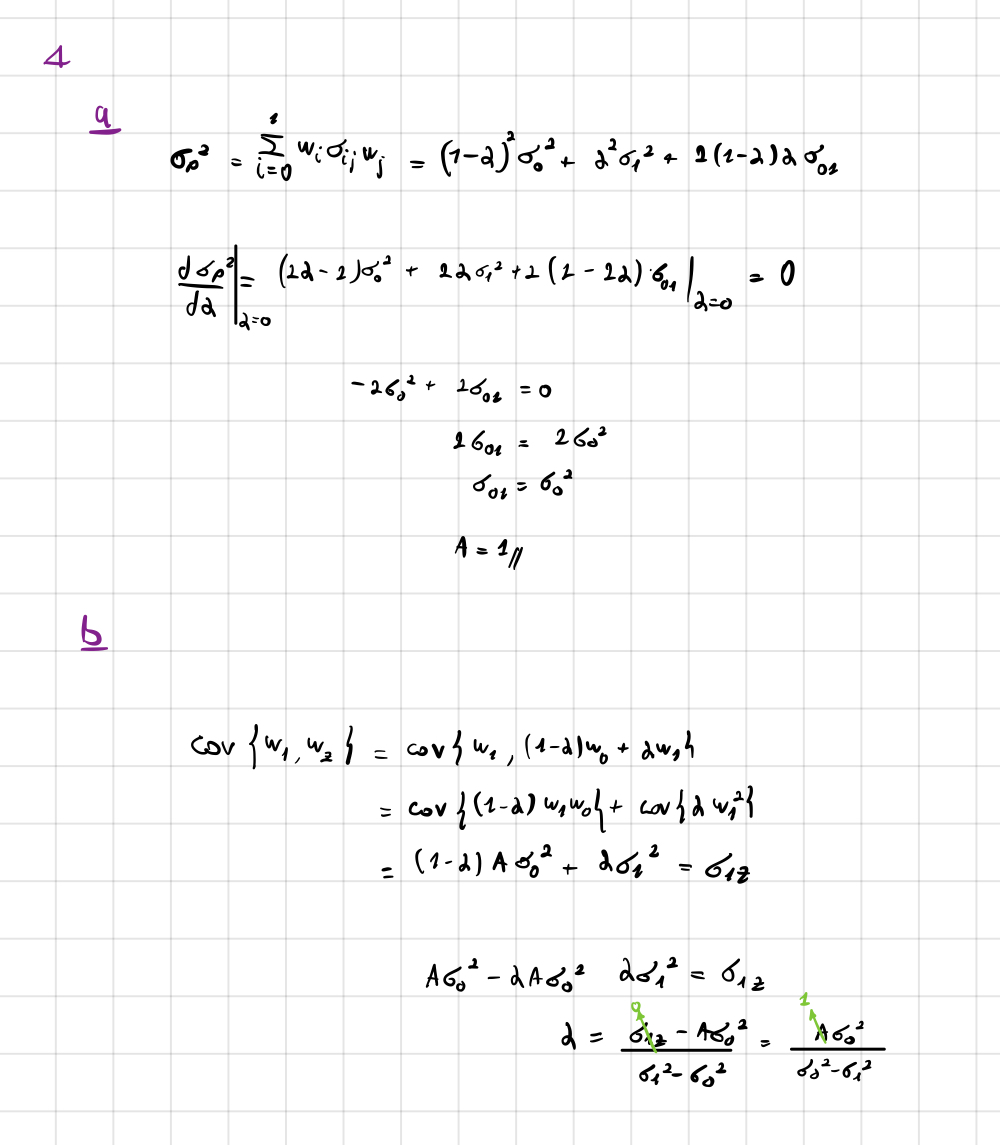 4
a
σₚ² = Σ_{i=0}^{1} wᵢσᵢⱼwⱼ = (1-α)²σ₀² + α²σ₁² + 2(1-α)ασ₀₁
dσₚ²/dα |_{α=0} = (2α-2)σ₀² + 2ασ₁² + 2(1-2α)·σ₀₁ |_{α=0} = 0
-2σ₀² + 2σ₀₁ = 0
2σ₀₁ = 2σ₀²
σ₀₁ = σ₀²
A = 1//
b
cov{w₁, w_z} = cov{w₁, (1-α)w₀ + αw₁}
= cov{(1-α)w₁w₀} + cov{αw₁²}
= (1-α)Aσ₀² + ασ₁² = σ₁z
Aσ₀² - αAσ₀² ασ₁² = σ₁z
0 1
α = (σ₁z - Aσ₀²)/(σ₁² - σ₀²) = Aσ₀²/(σ₀² - σ₁²)